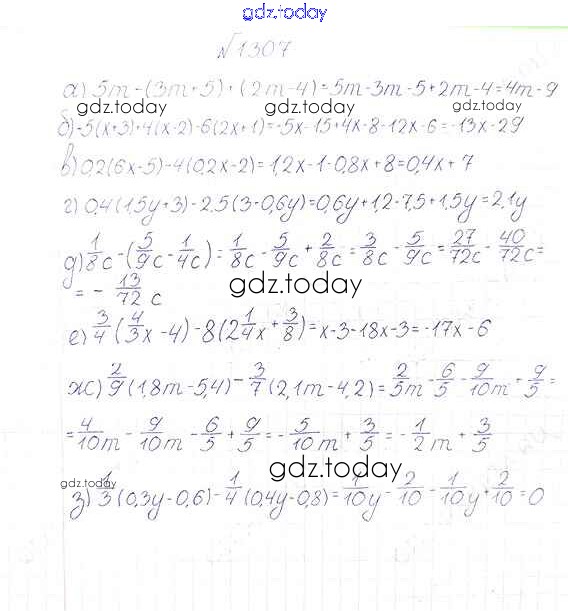 gdz.today
№1307
а) 5m-(3m+5)+(2m-4)=5m-3m-5+2m-4=4m-9
gdz.today gdz.today gdz.today
б) -5(x+3)+4(x-2)-6(2x+1)=-5x-15+4x-8-12x-6=-13x-29
в) 0,2(6x-5)-4(0,2x-2)=1,2x-1-0,8x+8=0,4x+7
г) 0,4(1,5y+3)-2,5(3-0,6y)=0,6y+1,2-7,5+1,5y=2,1y
д) 1/8c-(5/9c-1/4c)=1/8c-5/9c+2/8c=3/8c-5/9c=27/72c-40/72c=
=-13/72c
gdz.today gdz.today
е) 3/4(4/3x-4)-8(2 1/4x+3/8)=x-3-18x-3=-17x-6
ж) 2/9(1,8m-5,4)-3/7(2,1m-4,2)=2/5m-6/5-9/10m+9/5=
=4/10m-9/10m-6/5+9/5=-5/10m+3/5=-1/2m+3/5
gdz.today
gdz.today
з) 1/3(0,3y-0,6)-1/4(0,4y-0,8)=1/10y-2/10-1/10y+2/10=0
gdz.today